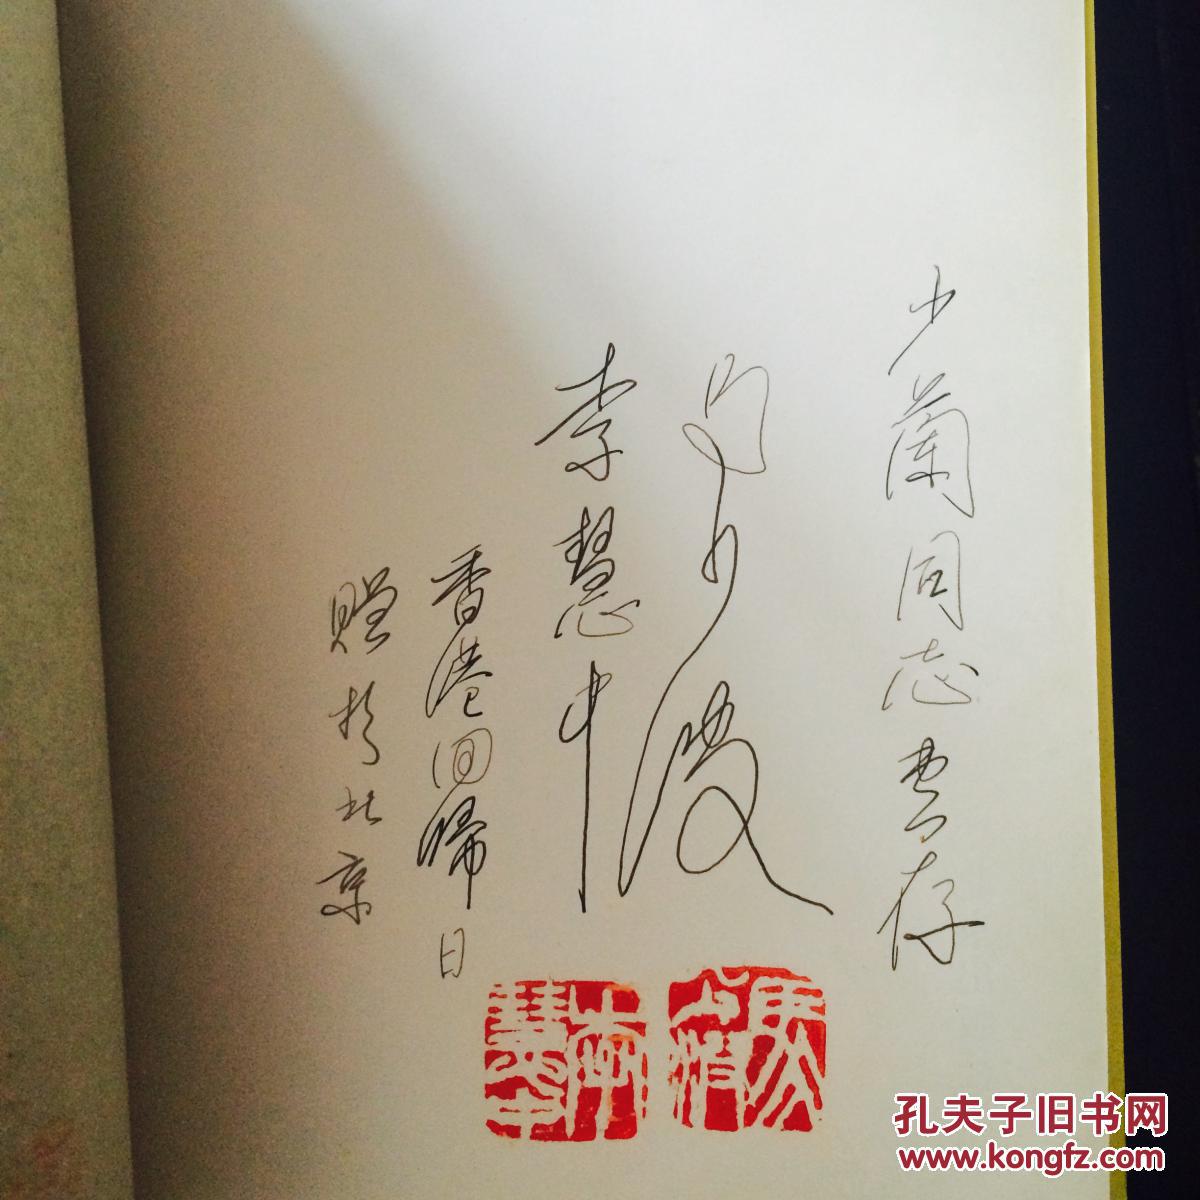 少蘭同志惠存
马少波
李慧中
香港回歸日
贈於北京
馬少波
李慧中
孔夫子旧书网
www.kongfz.com